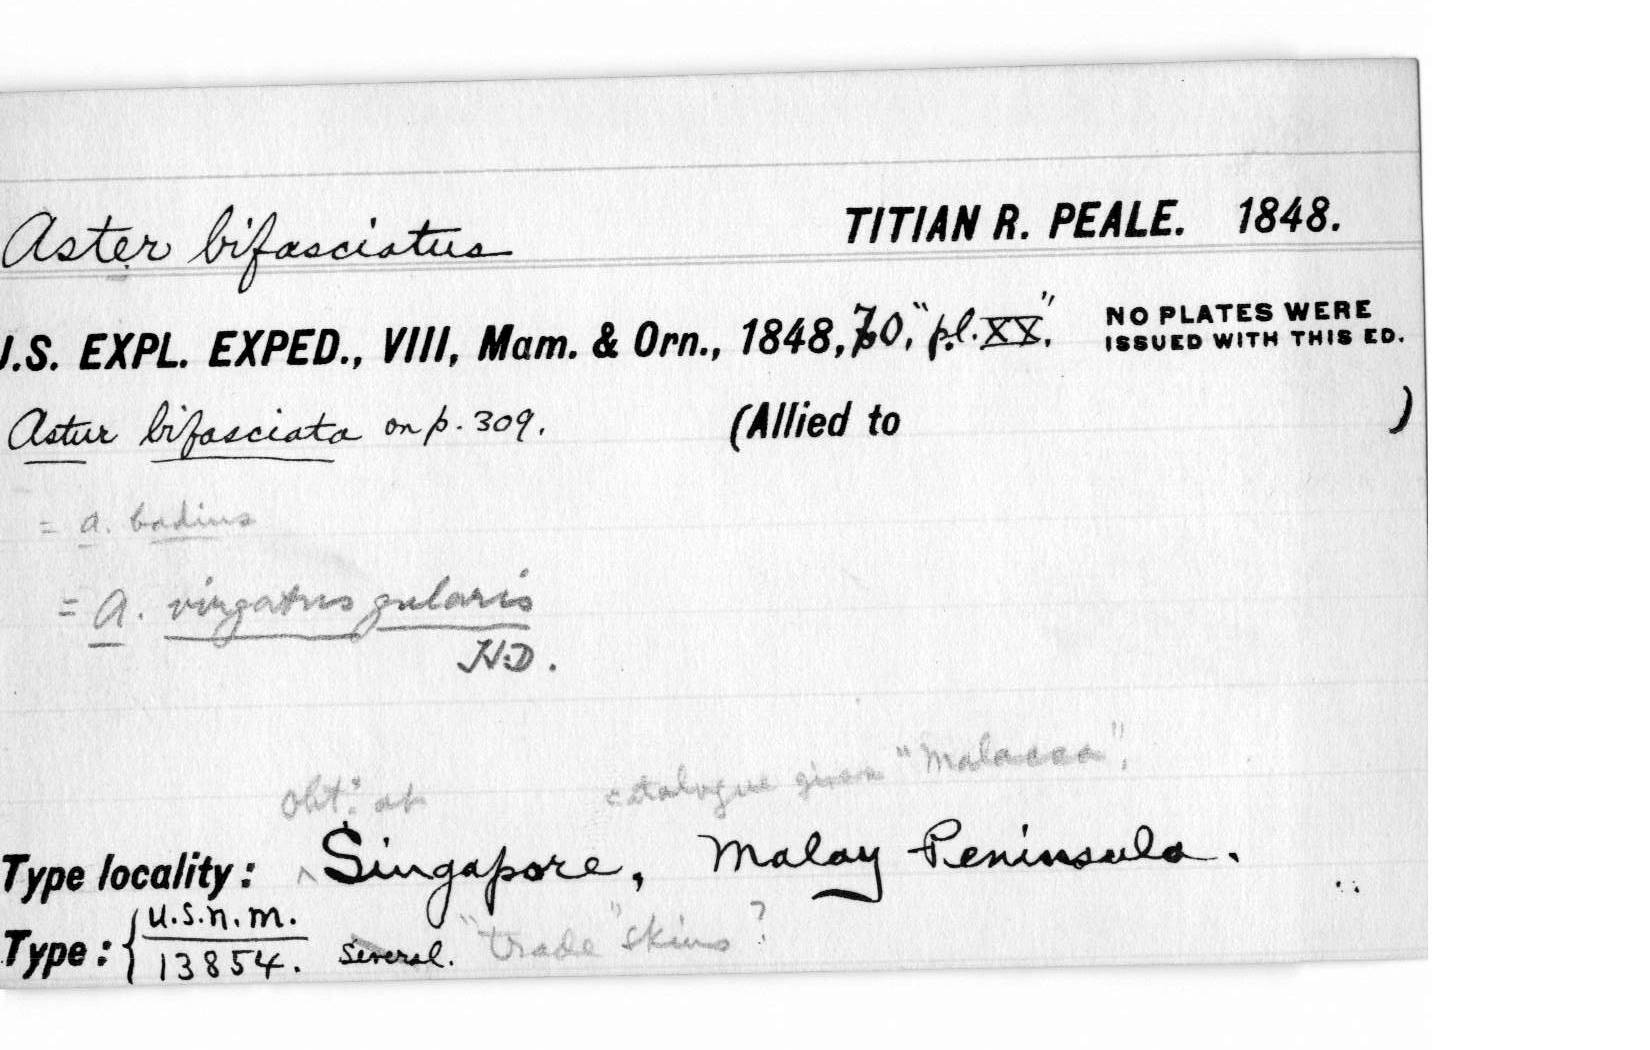 Aster bifasciatus TITIAN R. PEALE. 1848.
U.S. EXPL. EXPED., VIII, Mam. & Orn., 1848, 70, "pl. XX." NO PLATES WERE
ISSUED WITH THIS ED.
Astur bifasciata on p. 309. (Allied to )
= A. badius
= A. virgatus gularis
H.D.
Obt. at catalogue gives "Malacca".
Type locality: ^ Singapore, Malay Peninsula.
Type: { U.S.N.M.
13854. Several. "trade" skins?